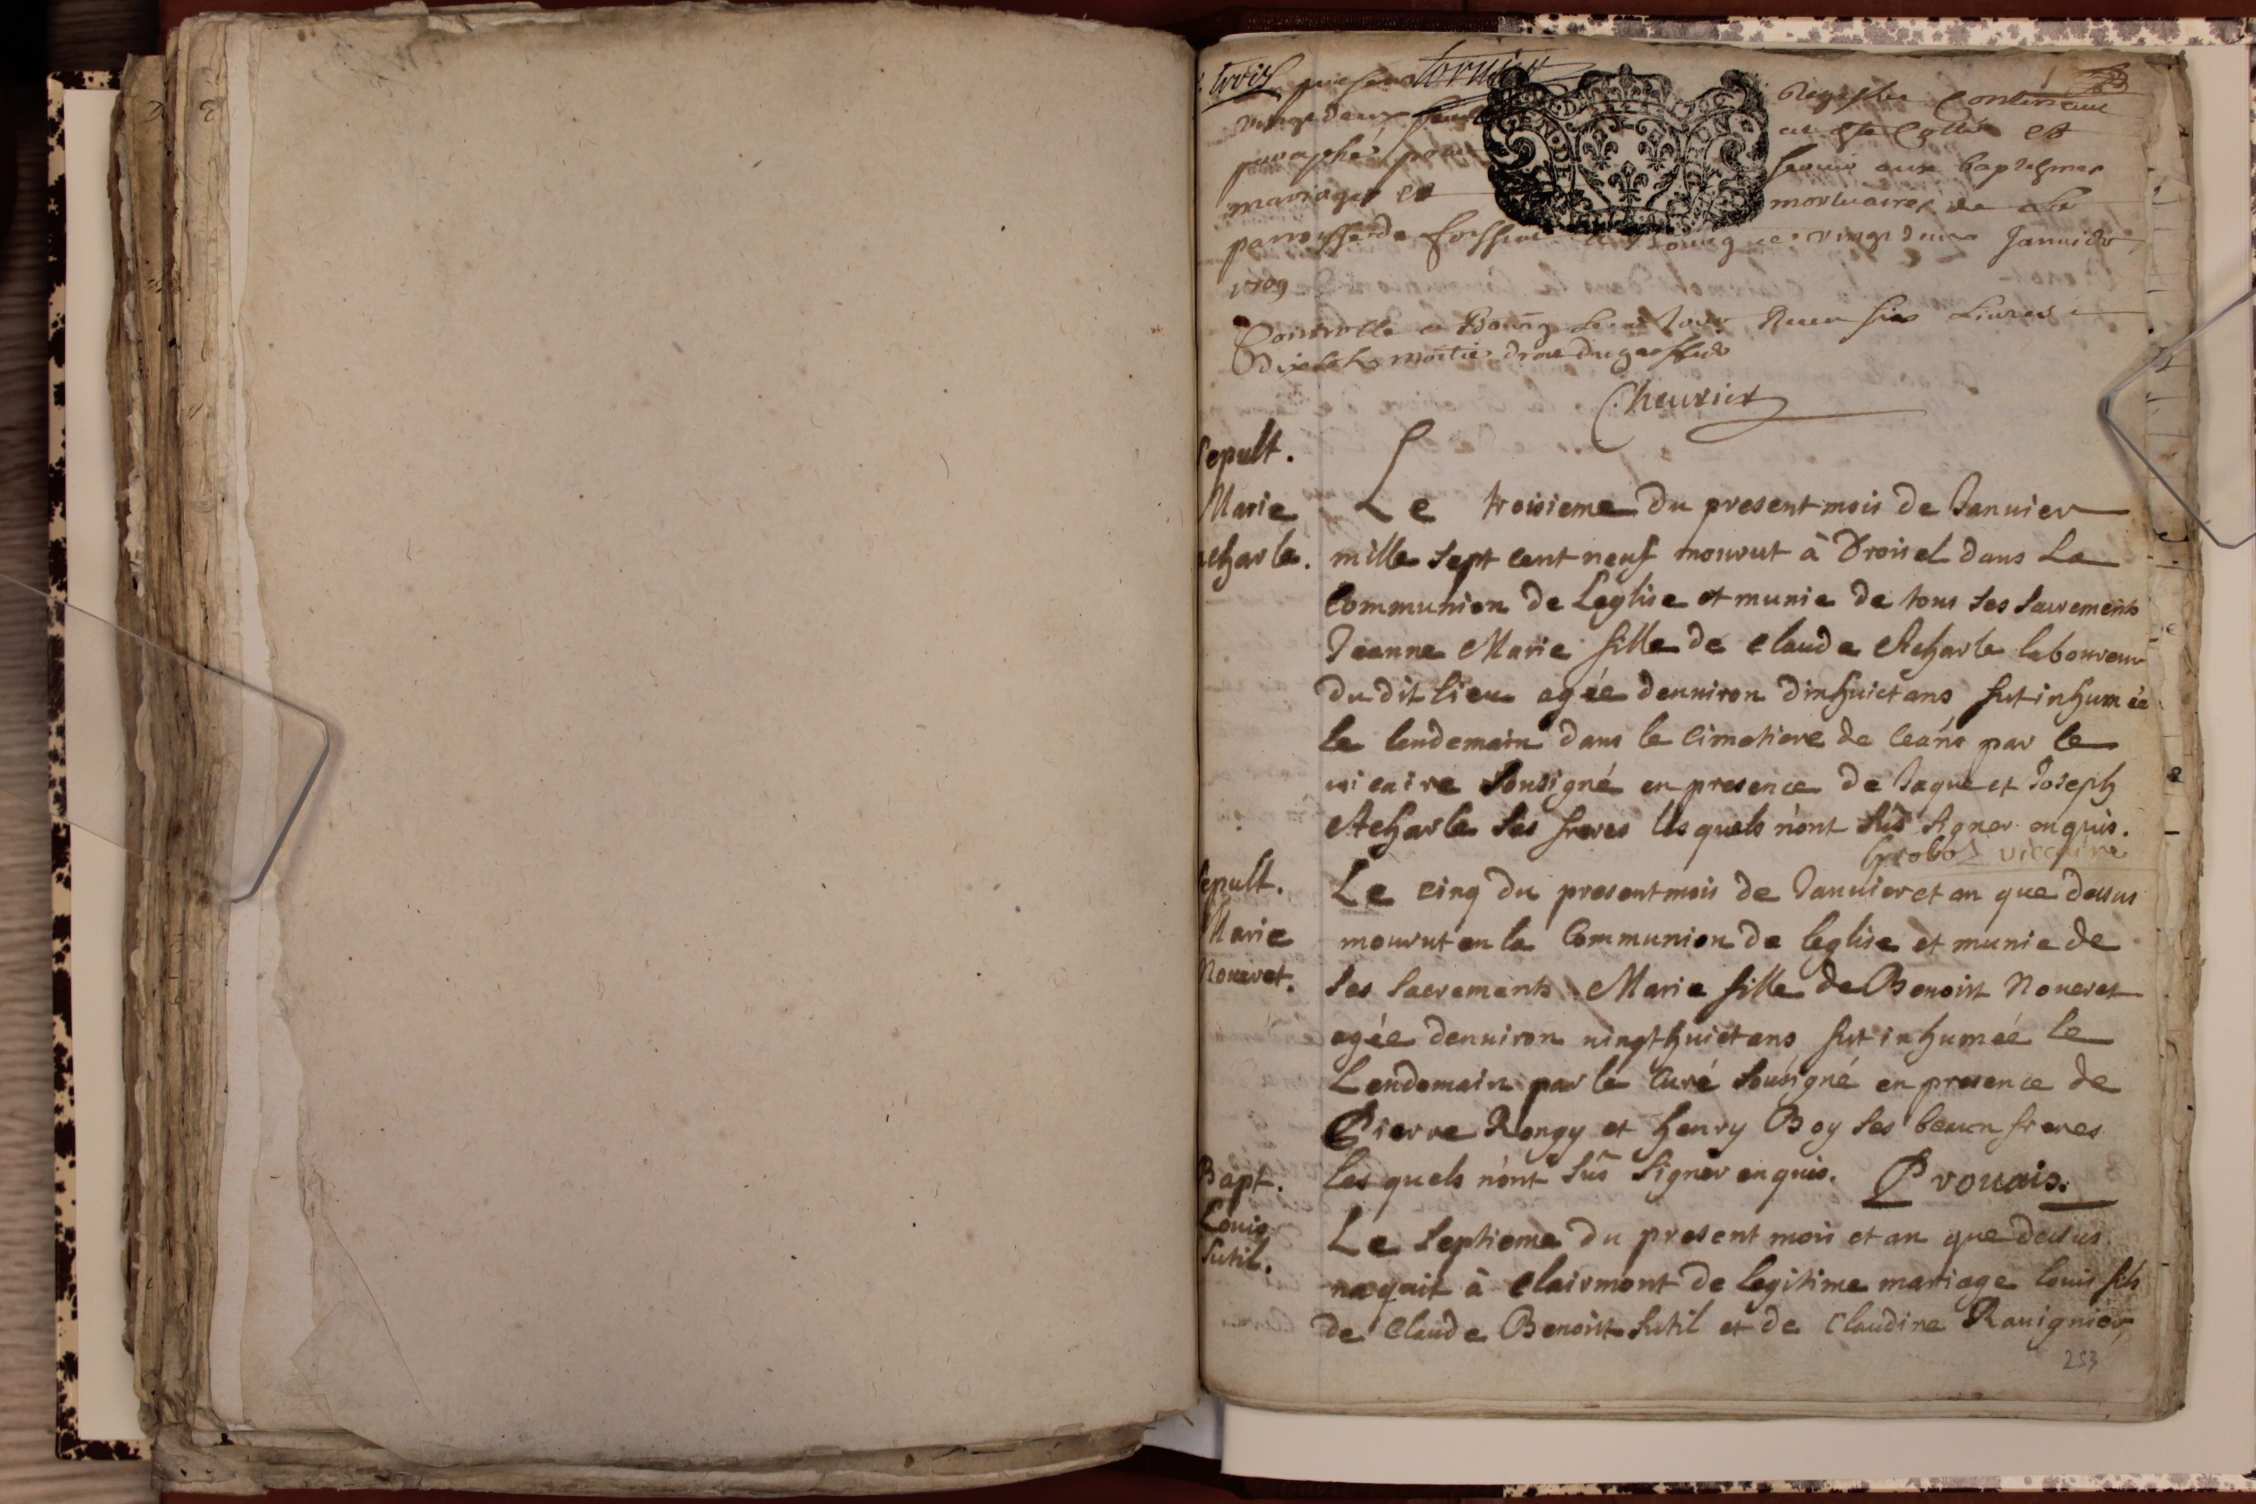 Le present Registre Contenant
vingt deux feuil a esté Cotté et
paraphés pour servir aux baptesmes
mariages et mortuaires de la
parroisse de a Bourg ce vingt deux Janvier
1709
Controllé a Bourg Receu six Livres
Dix sols moitié droit du greffier
Cheurier
Sepult.
Marie
Acharle.
Le troisieme Du present mois de Januier
mille sept cent neuf mourut à Droisel dans La
Communion de Leglise et munie de tous ses sacrements
Jeanne Marie fille de Claude Acharle laboureur
Du dit lieu agée denuiron dixhuict ans fut inhumée
le lendemain dans le Cimetiere de Ceans par le
uicaire Sousigné en presence de Jaque et Joseph
Acharle ses freres lesquels n'ont sus signer enquis.
viccaire
Sepult.
Marie
Noueret.
Le cinq du present mois de Januier et an que dessus
mourut en la Communion de leglise et munie de
ses Sacrements Marie fille de Benoist Noueret
agée denuiron uingthuict ans fut inhumée le
Lendemain par le Curé sousigné en presence de
Pierre Rongy et henry Boy ses beaux freres
les quels n'ont sus signer enquis. Prouais.
Bapt.
Louis
Sutil.
Le septieme Du present mois et an que dessus
naquit à Clairmont de legitime mariage louis fils
de Claude Benoist Sutil et de Claudine Rauignier
253